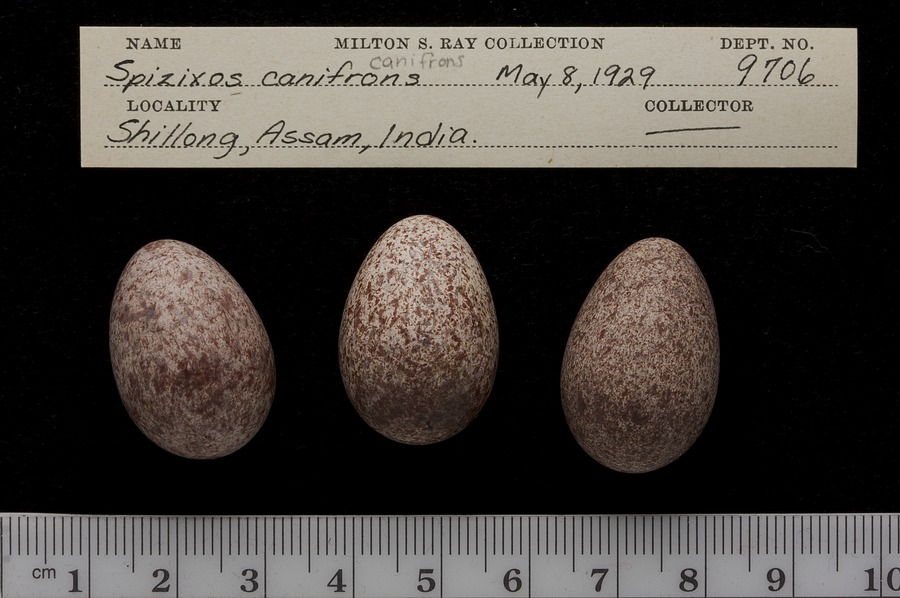 NAME MILTON S. RAY COLLECTION DEPT. NO.
canifrons
Spizixos canifrons May 8, 1929 9706
LOCALITY COLLECTOR
Shillong, Assam, India.
cm 1 2 3 4 5 6 7 8 9 10